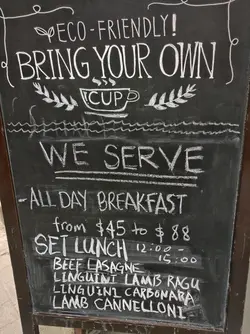 ECO-FRIENDLY!
BRING YOUR OWN
CUP
WE SERVE
ALL DAY BREAKFAST
from $45 to $88
SET LUNCH 12:00-
15:00
BEEF LASAGNE
LINGUINI LAMB RAGU
LINGUINI CARBONARA
LAMB CANNELLONI